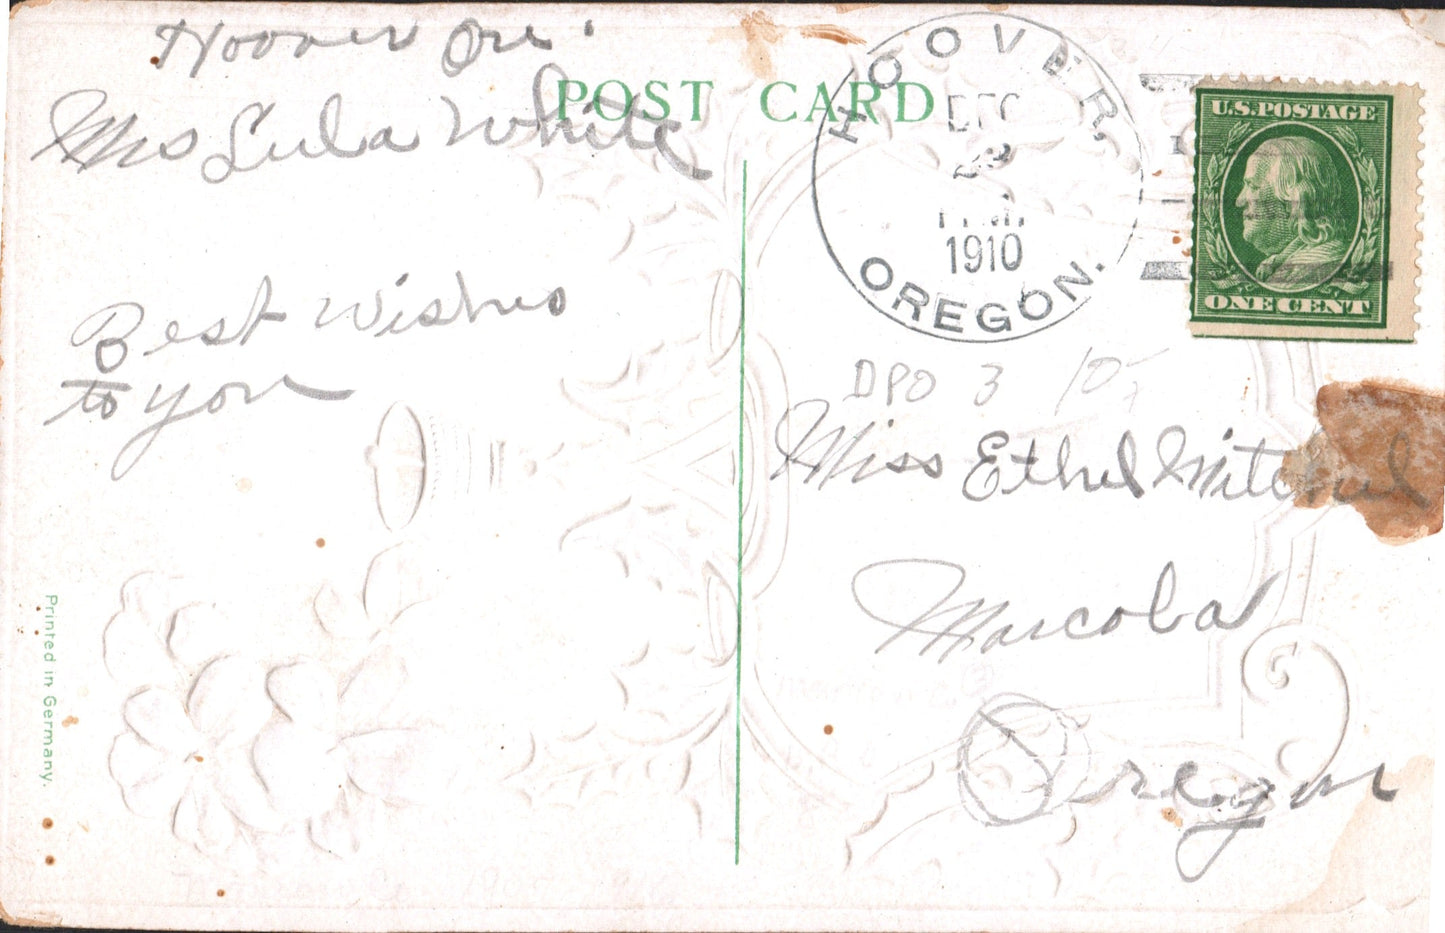 Hoover Ore.
Mrs Lula White
Best Wishes
to you
Printed in Germany.
POST CARD
HOOVER,
DEC
1910
OREGON.
U.S. POSTAGE
ONE CENT
DPO 3 10-
Miss Ethel Mitchel
Marcola
Oregon